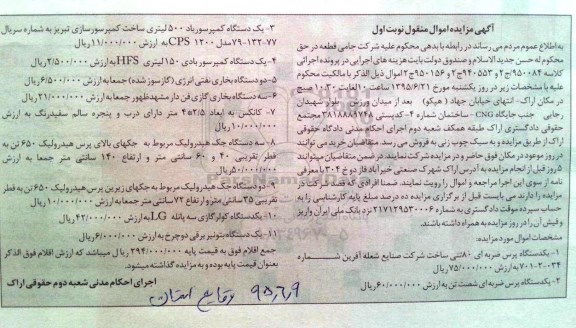 آگهی مزایده اموال منقول نوبت اول
به اطلاع عموم مردم می رساند در رابطه با بدهی محکوم علیه شرکت جامی قطعه در حق
محکوم له حسن جدید الاسلام و صندوق دولت بابت هزینه های اجرایی در پرونده اجرائی
کلاسه ۹۵۰۰۸۴/ج۲ و ۹۴۰۵۵۳/ج۲ و ۹۵۰۱۵۶/ج۲ اموال ذیل الذکر با مالکیت محکوم
علیه با مشخصات زیر در روز یکشنبه مورخ ۱۳۹۵/۶/۲۱ ساعت ۱۰ لغایت ۱۰:۳۰ صبح
در مکان اراک- انتهای خیابان جهاد ( هپکو) بعد از میدان ورزین بلوار شهیدان
رجایی جنب جایگاه CNG - ساختمان شماره ۴- کدپستی ۳۸۱۸۸۸۹۷۴۸ مجتمع
حقوقی دادگستری اراک طبقه همکف شعبه دوم اجرای احکام مدنی دادگاه حقوقی
اراک از طریق مزایده و به سبک چوب زنی به فروش می رسد. متقاضیان خرید می توانند
در روز موعود در مکان فوق حاضر و در مزیده شرکت نمایند. در ضمن متقاضیان میتوانند
۵ روز قبل از انجام مزایده به آدرس اراک شهرک صنعتی خیرآباد فاز دوخ ۳۰۴ با معرفی
نامه از سوی این اجرا مراجعه و اموال را رویت نمایند. ضمنا افرادی که قصد شرکت در
مزایده را دارند می بایست قبل از برگزاری مزایده ده درصد مبلغ پایه کارشناسی را به
حساب سپرده موقت دادگستری به شماره ۲۱۷۱۲۹۵۳۰۰۰۶ نزد بانک ملی ایران واریز
و فیش آن را در روز مزایده به همراه داشته باشند.
مشخصات اموال مورد مزایده:
۱- یکدستگاه پرس ضربه ای ۸۰ تنی ساخت شرکت صنایع شعله آفرین به شماره
۷۰۱-۲۰-۰۳۴ به ارزش ۷۵/۰۰۰/۰۰۰ ریال
۲- یکدستگاه پرس ضربه ای شصت تن به ارزش ۶۰/۰۰۰/۰۰۰ ریال
۳- یک دستگاه کمپرسور باد ۵۰۰ لیتری ساخت کمپرسور سازی تبریز به شماره سریال
۷۹-۱۳۲-۷۷ مدل CPS ۱۲۰۰ به ارزش ۱۱/۰۰۰/۰۰۰ ریال
۴- یک دستگاه کمپرسور بادی ۱۵۰ لیتری HFS به ارزش ۲/۵۰۰/۰۰۰ ریال
۵- دو دستگاه بخاری نفتی انرژی (گازسوز شده) جمعا به ارزش ۶/۵۰۰/۰۰۰ ریال
۶- سه دستگاه بخاری گازی فن دار مشهد ظهور جمعا به ارزش ۲۱/۰۰۰/۰۰۰ ریال
۷- کانکس به ابعاد ۲/۵*۴ متر دارای درب و پنجره سالم سفیدرنگ به ارزش
۱۰/۰۰۰/۰۰۰ ریال
۸- سه دستگاه جک هیدرولیک مربوط به جکهای بالای پرس هیدرولیک ۶۵۰ تن به
قطر تقریبی ۴۰ و ۶۰ سانتی متر و ارتفاع ۱۴۰ سانتی متر جمعا به ارزش
۵۰/۰۰۰/۰۰۰ ریال
۹- دو دستگاه جک هیدرولیک مربوط به جکهای زیرین پرس هیدرولیک ۶۵۰ تن به قطر
تقریبی ۳۵ سانتی متر و ارتفاع ۷۲ سانتی متر جمعا به ارزش ۱۰/۰۰۰/۰۰۰ ریال
۱۰- یکدستگاه کولر گازی سه پانله LG به ارزش ۴۲/۰۰۰/۰۰۰ ریال
۱۱- یک دستگاه بتونیر برقی دو چرخ به ارزش ۶/۰۰۰/۰۰۰ ریال
جمع اقلام فوق به قیمت پایه ۲۹۴/۰۰۰/۰۰۰ ریال میباشد که ارزش اقلام فوق الذکر
بعنوان قیمت پایه بوده و به مزایده گذاشته میشود.
اجرای احکام مدنی شعبه دوم حقوقی اراک
۹۵/۶/۹ وقایع استان